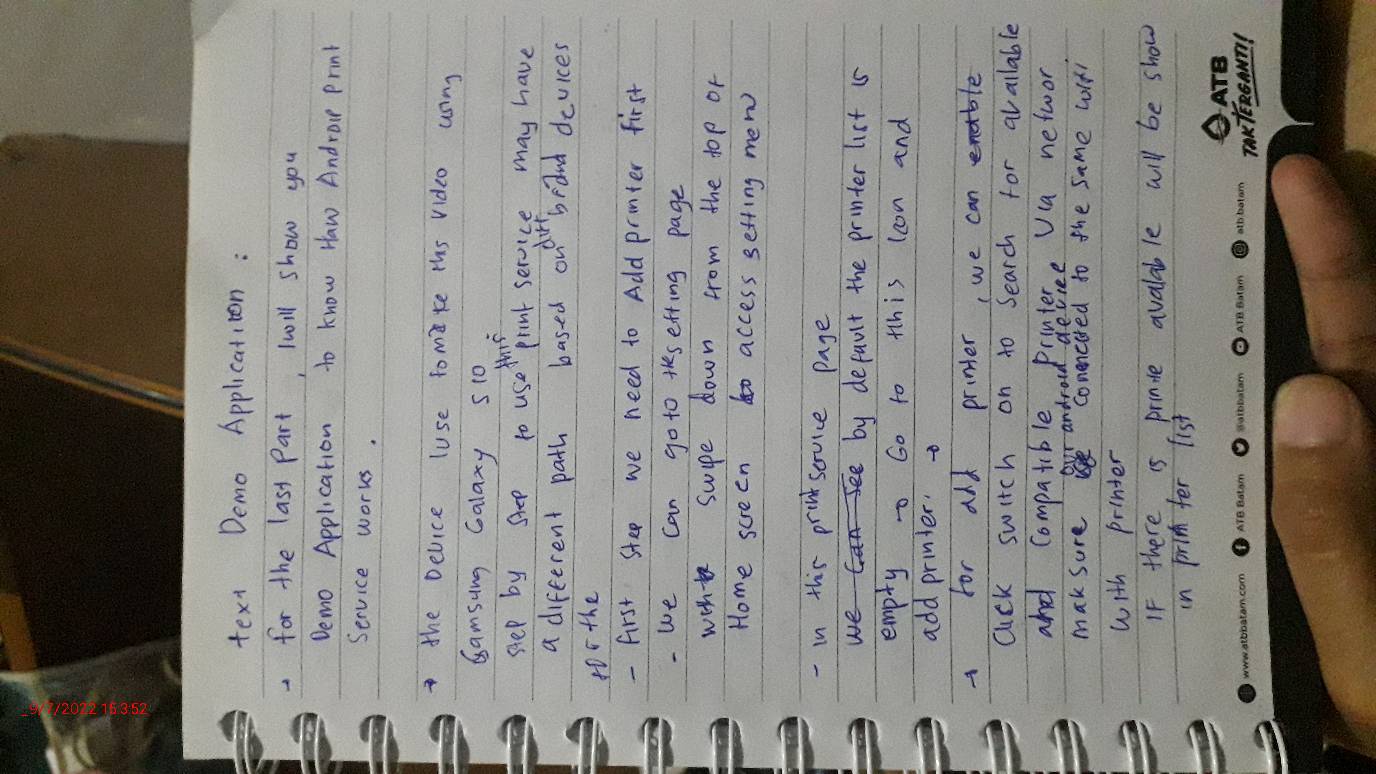 text Demo Application :
→ for the last part , I will show you
Demo Application to know Haw Android print
Service works .
→ the Device I use to make this video using
Samsung Galaxy S10
Step by step to use this print service may have
a different path based on diff brand devices
for the
- first step we need to Add printer first
- we can go to the setting page
with swipe down from the top of
Home screen to access setting menu
- in this print service page
we can see by default the printer list is
empty → Go to this icon and
add printer. →
→ for add printer , we can enable
Click switch on to search for available
and compatible printer via networ
make sure our android device connected to the same wifi
with printer
IF there is printe avalable will be show
in printer list
www.atbbatam.com ATB Batam @atbbatam ATB Batam atb batam
ATB
TAK TERGANTI!
_9/7/2022 15:3:52